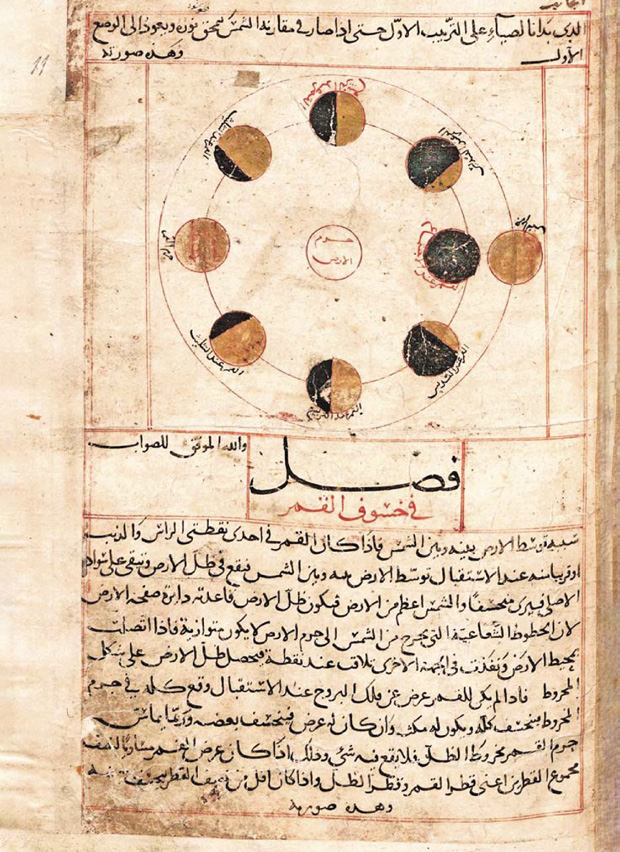 الذى بدا بالضياء على الترتيب الاول حتى اذا صار فى مقارنة الشمس ينمحق نوره ويعود الى الوضع
الاول وهذه صورته
جرم
الارض
والله الموفق للصواب
فصل
فى خسوف القمر
سببه توسط الارض بينه وبين الشمس فاذا كان القمر فى احدى نقطتى الراس والذنب
او قريبا منه عند الاستقبال توسط الارض بينه وبين الشمس فيقع فى ظل الارض ويبقى على سواده
الاصلى فيرى منخسفا والشمس اعظم من الارض فيكون ظل الارض قاعدته دايرة صفحة الارض
لان الخطوط الشعاعية التى يخرج من الشمس الى جرم الارض لا يكون متوازية فاذا اتصلت
بمحيط الارض ونفذت فى الجهة الاخرى تلاقت عند نقطة فيحصل ظل الارض على شكل
المخروط فاذا لم يكن للقمر عرض عن فلك البروج عند الاستقبال وقع كله فى جرم
المخروط فينخسف كله ويكون له مكث وان كان له عرض فينخسف بعضه وربما يماس
جرم القمر مخروط الظل فلا يقع فيه شىء وذلك اذا كان عرض القمر مساويا لنصف
مجموع القطرين اعنى قطر القمر وقطر الظل واذا كان اقل من نصف القطرين يخسف بعضه
وهذه صورته